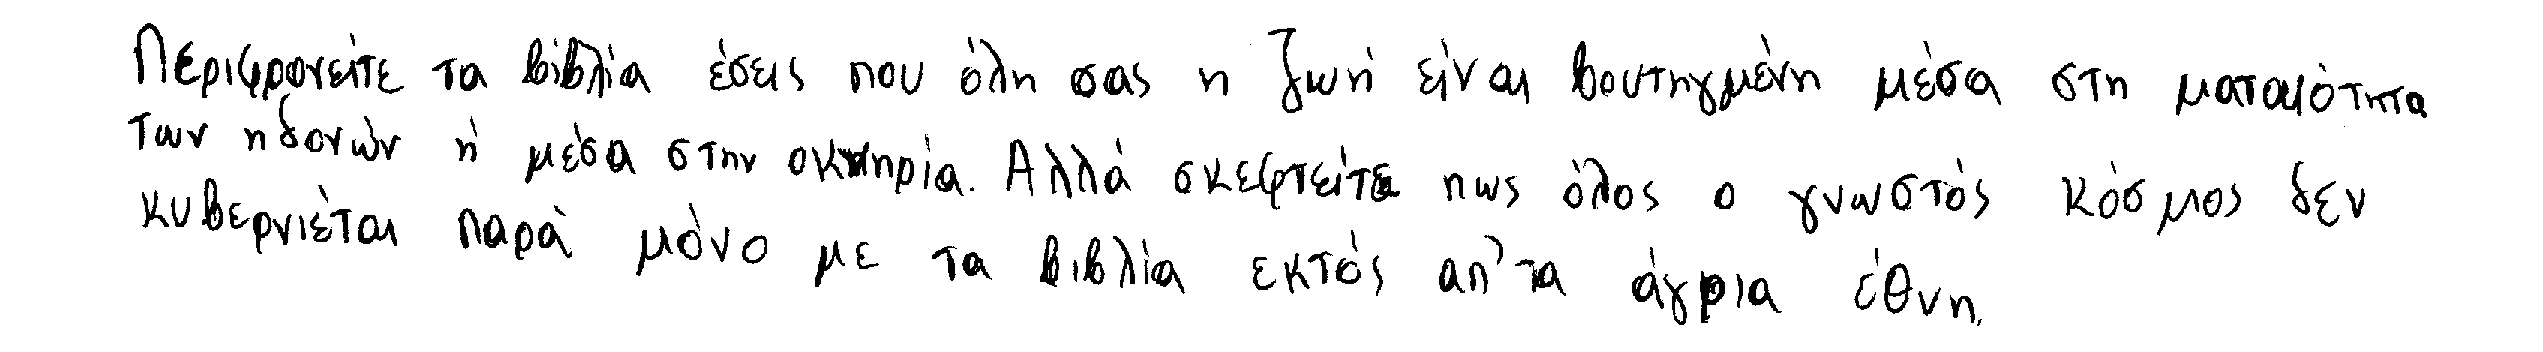 Περιφρονείτε τα βιβλία έσεις που όλη σας η ζωή είναι βουτηγμένη μέσα στη ματαιότητα
των ηδονών ή μέσα στην οκνηρία. Αλλά σκεφτείτε πως όλος ο γνωστός κόσμος δεν
κυβερνιέται παρά μόνο με τα βιβλία εκτός απ'τα άγρια έθνη.